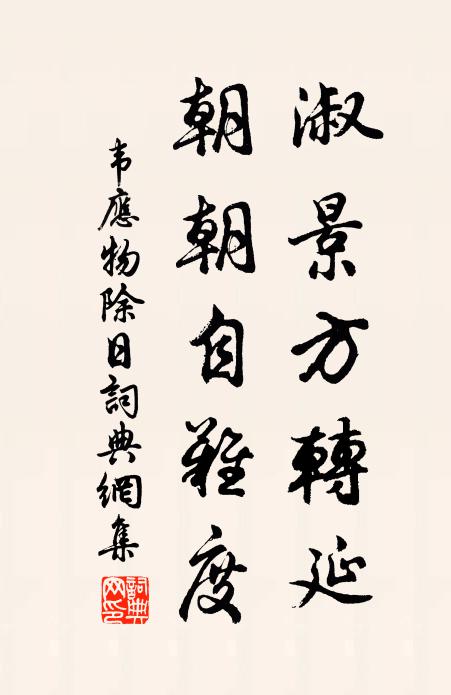 淑景方轉延
朝朝自難度
韦應物除日詞典網集
詞典网印